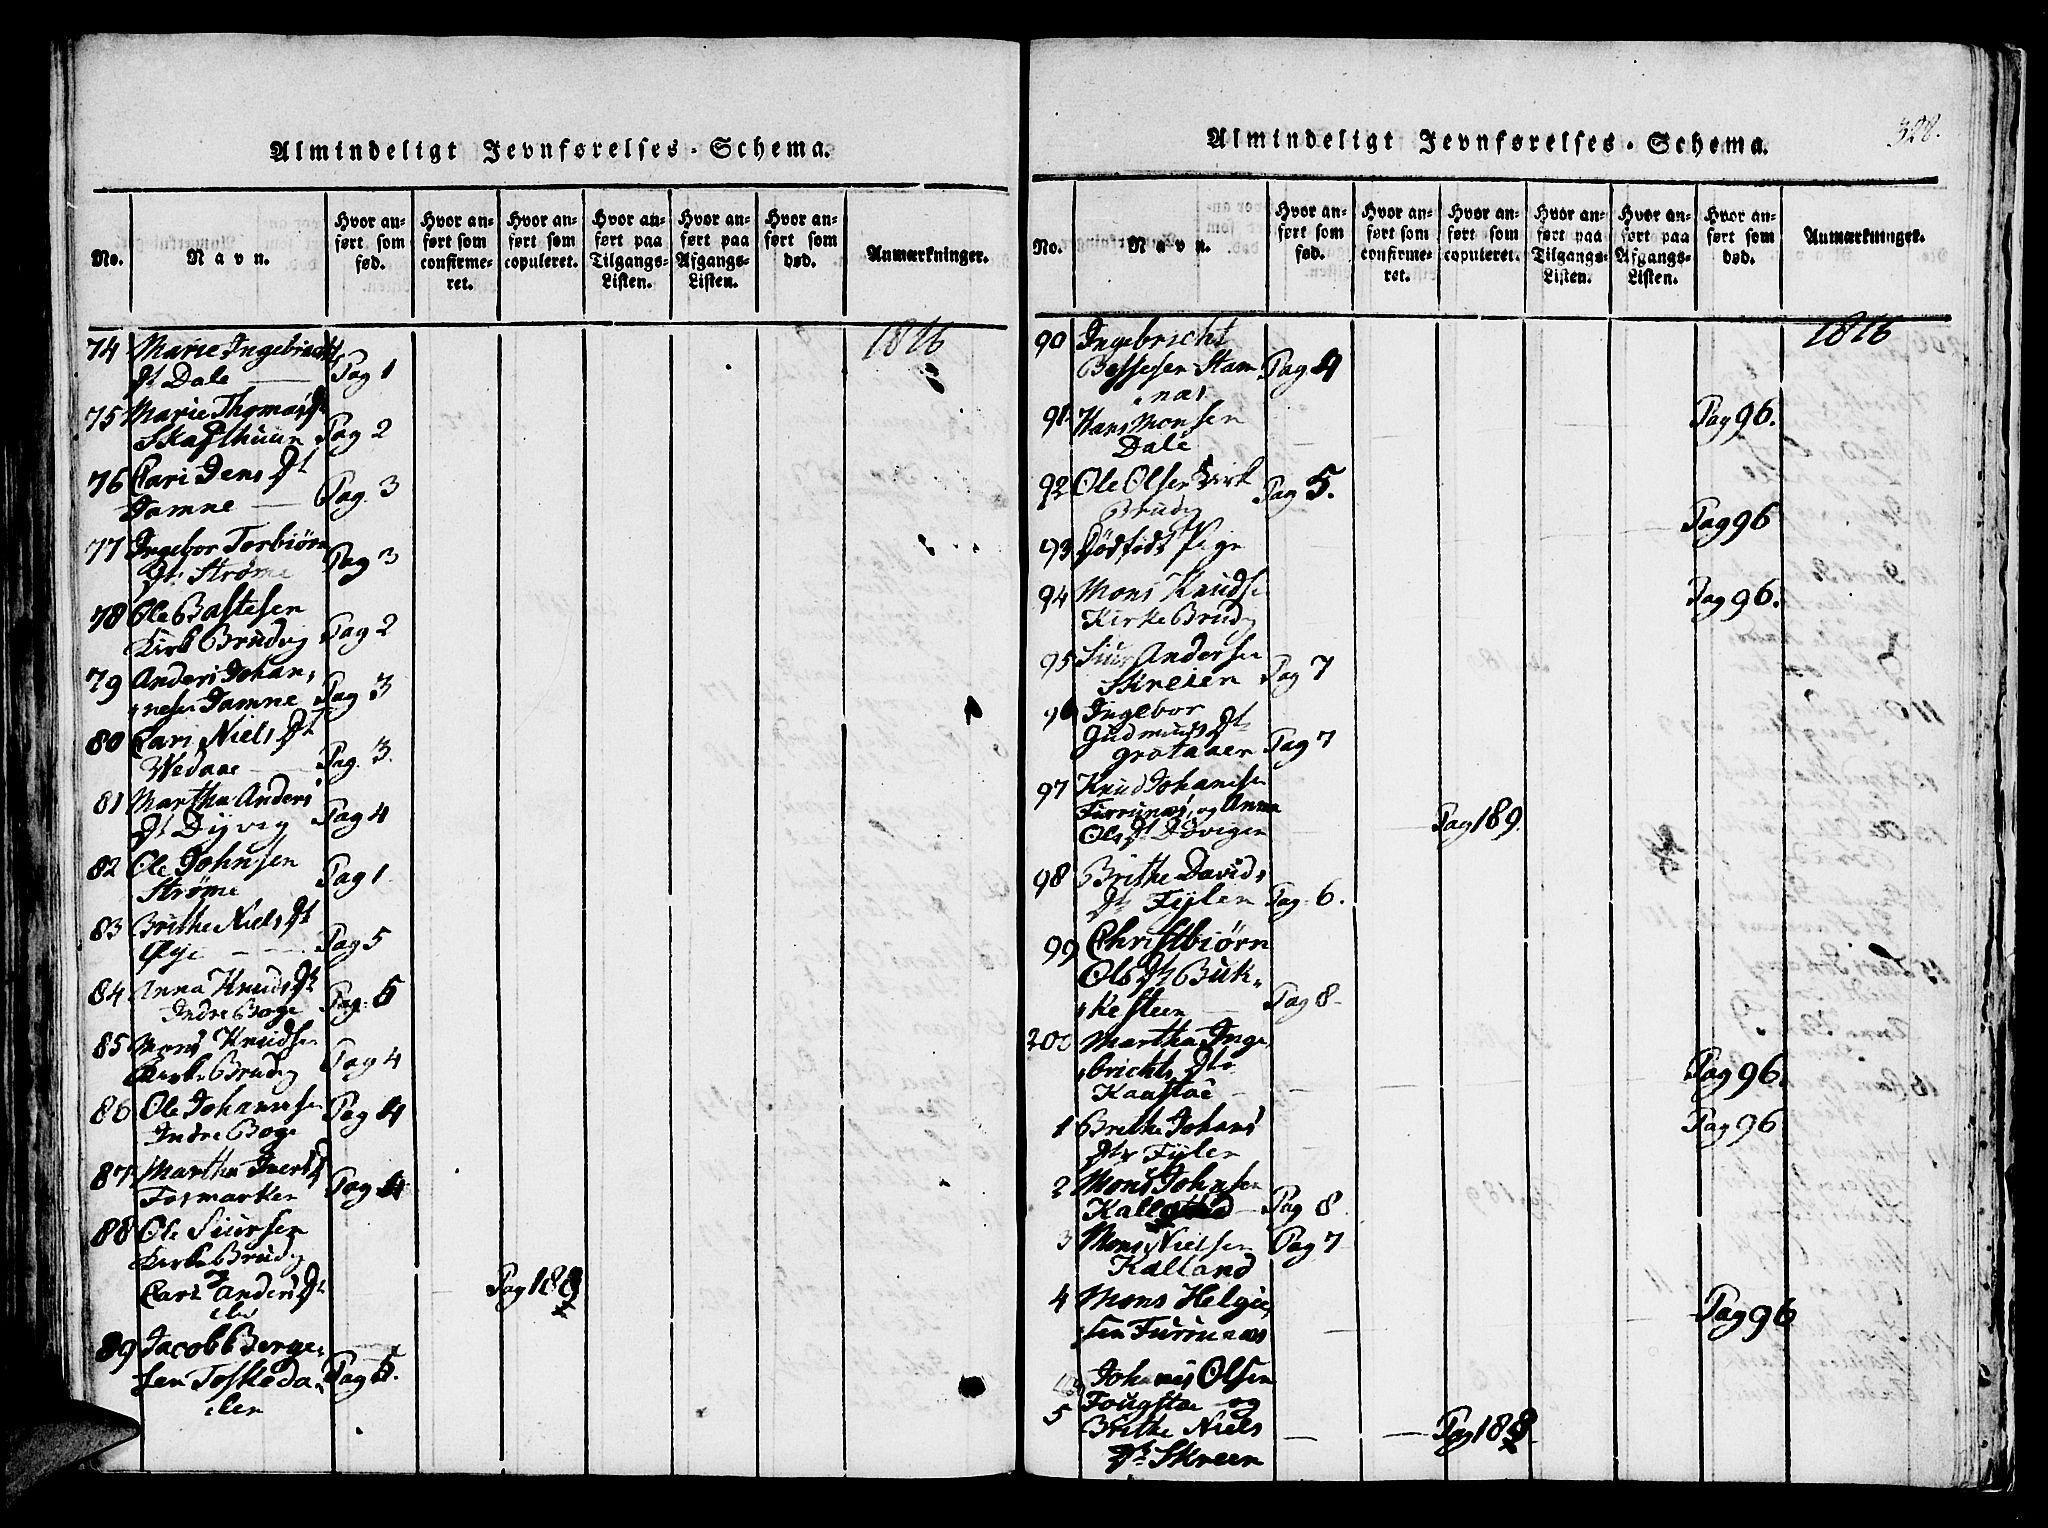 Almindeligt Jevnførelses-Schema.
No.
Navn.
Hvor an-
ført som
fød.
Hvor an-
ført som
confirme-
ret.
Hvor an-
ført som
copuleret.
Hvor an-
ført paa
Tilgangs-
Listen.
Hvor an-
ført paa
Afgangs-
Listen.
Hvor an-
ført som
død.
Anmærkninger.
1816
74 Marie Ingebrichts
Dt Dale Pag 1
75 Marie Thomas Dt
Skafthuun Pag 2
76 Cari Jens Dt
Jamne Pag. 3
77 Ingebor Torbiørn
Dt Strøme Pag 3
78 Ole Bastesen
Kirk Brudvig Pag 2
79 Anders Johan,
nesen Jamne Pag 3
80 Cari Niels Dt
Wedaae Pag. 3.
81 Martha Anders
Dt Dyveg Pag 4
82 Ole Johnsen
Strøme Pag 1
83 Brithe Niels Dt
Øye Pag 5
84 Anna Knuds Dt
Indre Boge Pag. 5
85 Mons Knudsen
Kirke Brudvig Pag 4
86 Ole Johannesen Pag 4
Indre Boge
87. Martha Ivers Dt
Fosmarken Pag 4
88 Ole Siursen
Kirke Brudvig
Cari Anders Dt
Pag 188
89 Jacob Berge,
sen Toskeda, Pag 5.
len
Almindeligt Jevnførelses-Schema.
328.
No.
Navn.
Hvor an-
ført som
fød.
Hvor an-
ført som
confirme-
ret.
Hvor an-
ført som
copuleret.
Hvor an-
ført paa
Tilgangs-
Listen.
Hvor an-
ført paa
Afgangs-
Listen.
Hvor an-
ført som
død.
Anmærkninger.
1816
90 Ingebricht
Bessesen Stam Pag 4
nes
91. Hans Monsen Pag 96.
Dale
92 Ole Olsen Kirk Pag 5.
Brudvig
93 Dødfødt Pige Pag 96
94 Mons Knudse Pag 96.
Kirke Brudvig
95 Siur Andersen
Skreien Pag 7
96 Ingebor
Gudmunds Dt
Grotaaen Pag 7
97 Knud Johannesen
Furrunæs, og Anna
Ols Dt Pag 189.
98 Brithe Davids
Dt Fylen Pag. 6.
99 Christbiørn
Ols Dt Buk,
kesteen Pag 8
200 Martha Inge,
brichts Dtr Pag 96.
Kaastøe
1 Brithe Johans Pag 96
Dtr Fylen
2 Mons Johnsen
Kalland Pag 8
3 Mons Nielsen Pag 7
Kalland
4 Mons Helge,
sen Furrunæs Pag 96
Johanes Olsen
5 Fougstae og
Brithe Niels Pag 188
Dt Skreen